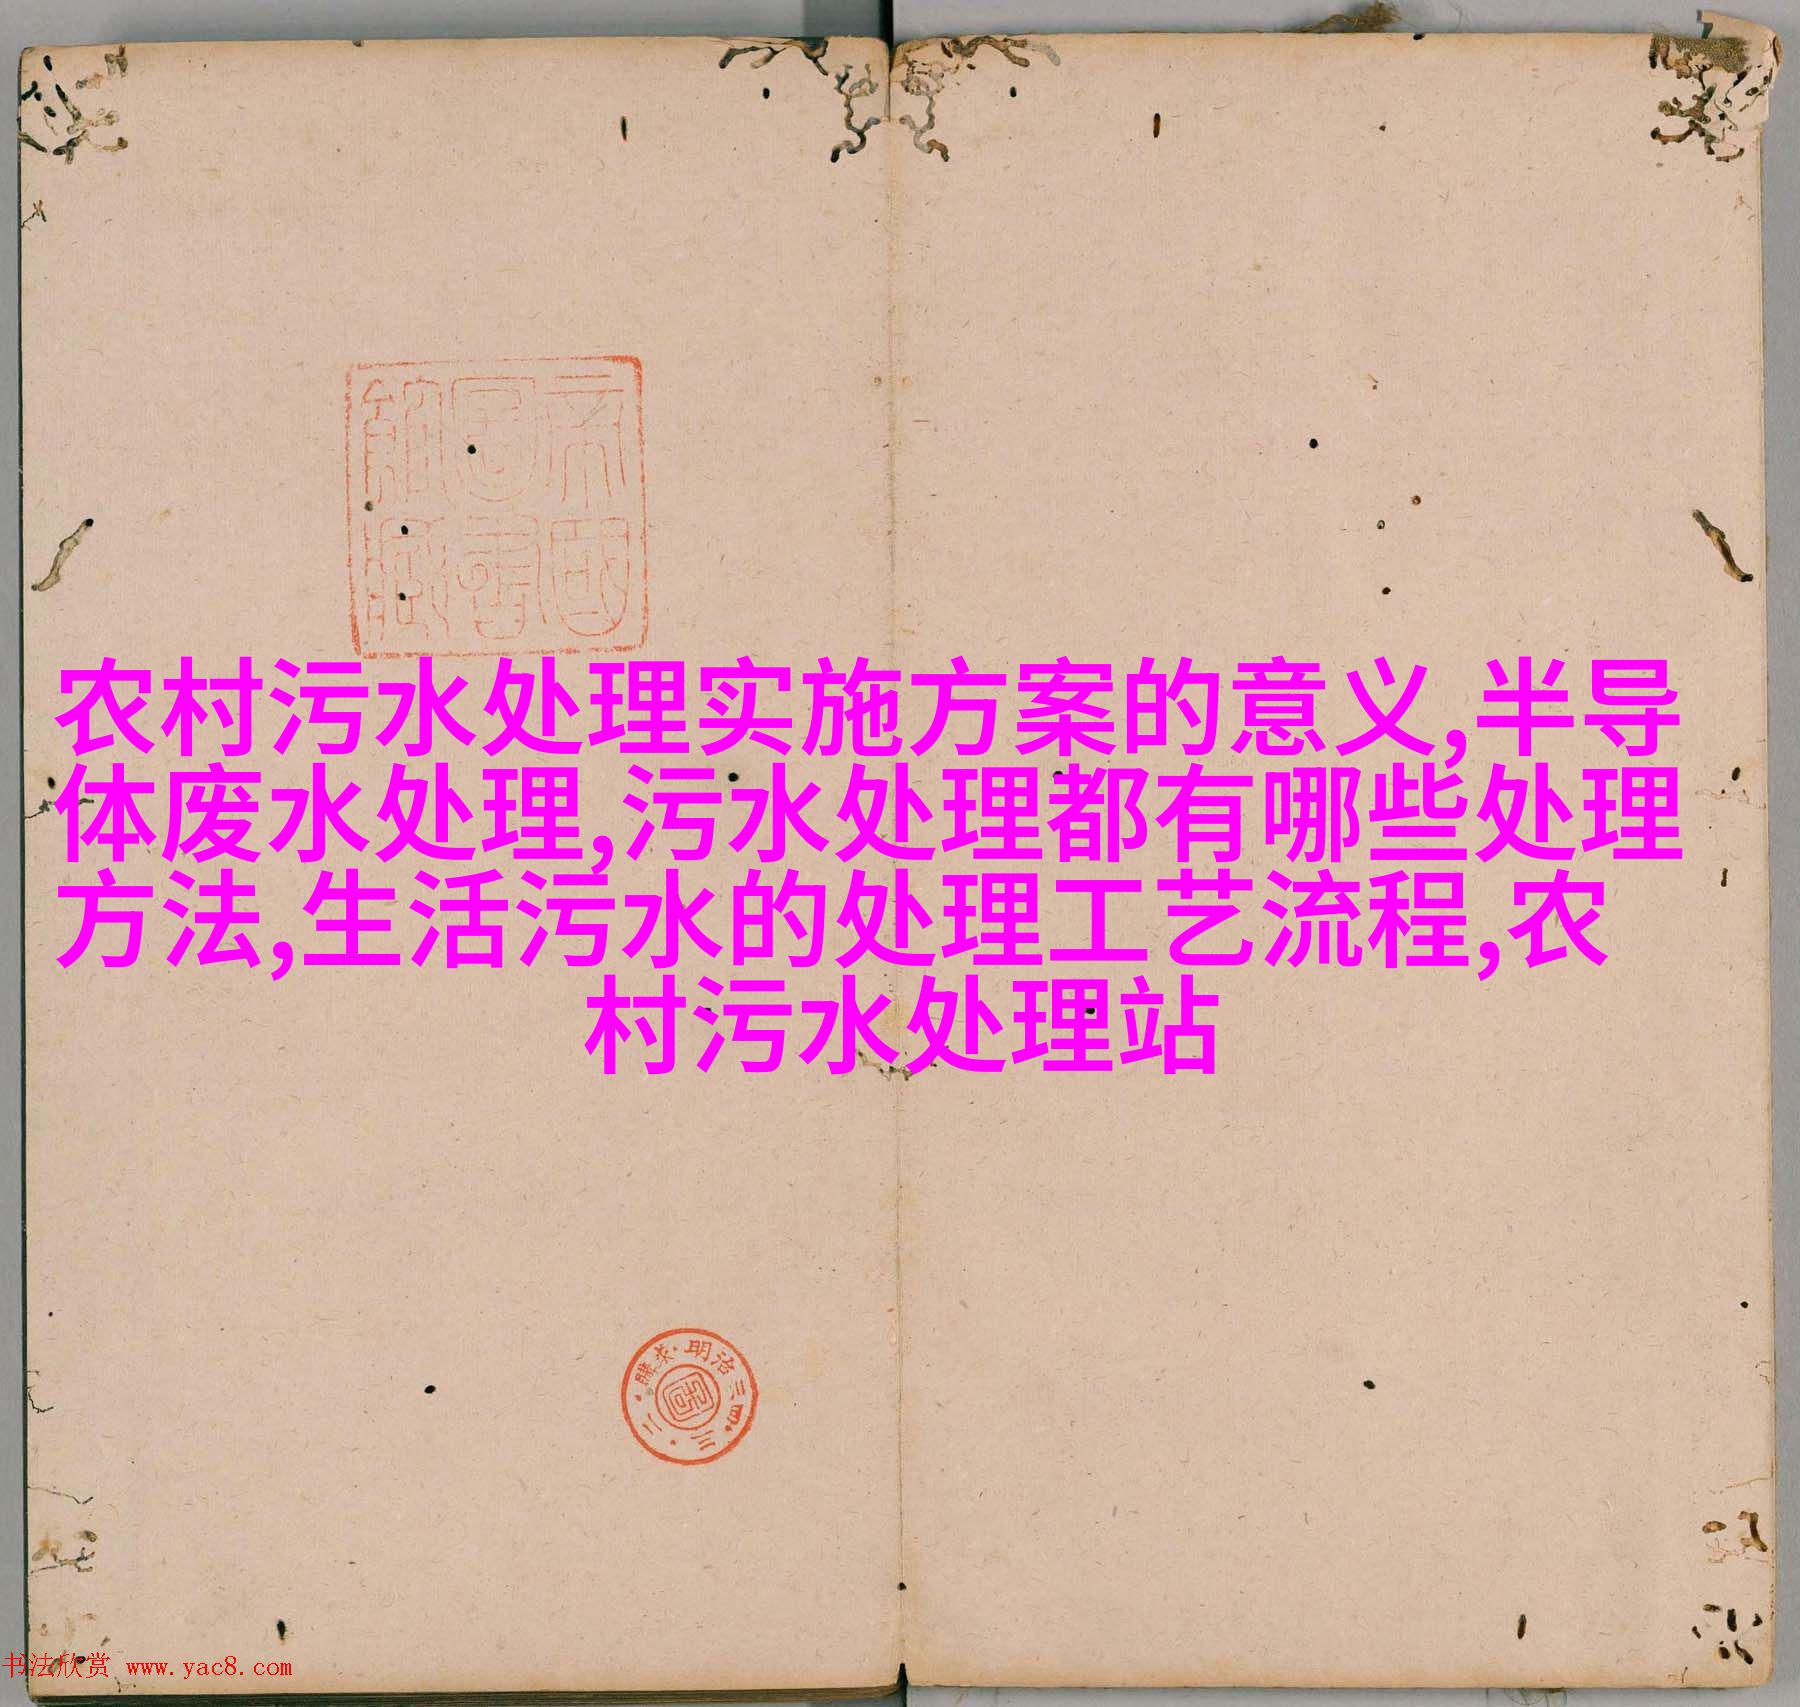 帝国
圖書
館藏
农村污水处理实施方案的意义,半导
体废水处理,污水处理都有哪些处理
方法,生活污水的处理工艺流程,农
村污水处理站
明治三四・三・二・購求・
书法欣赏 www.yac8.com